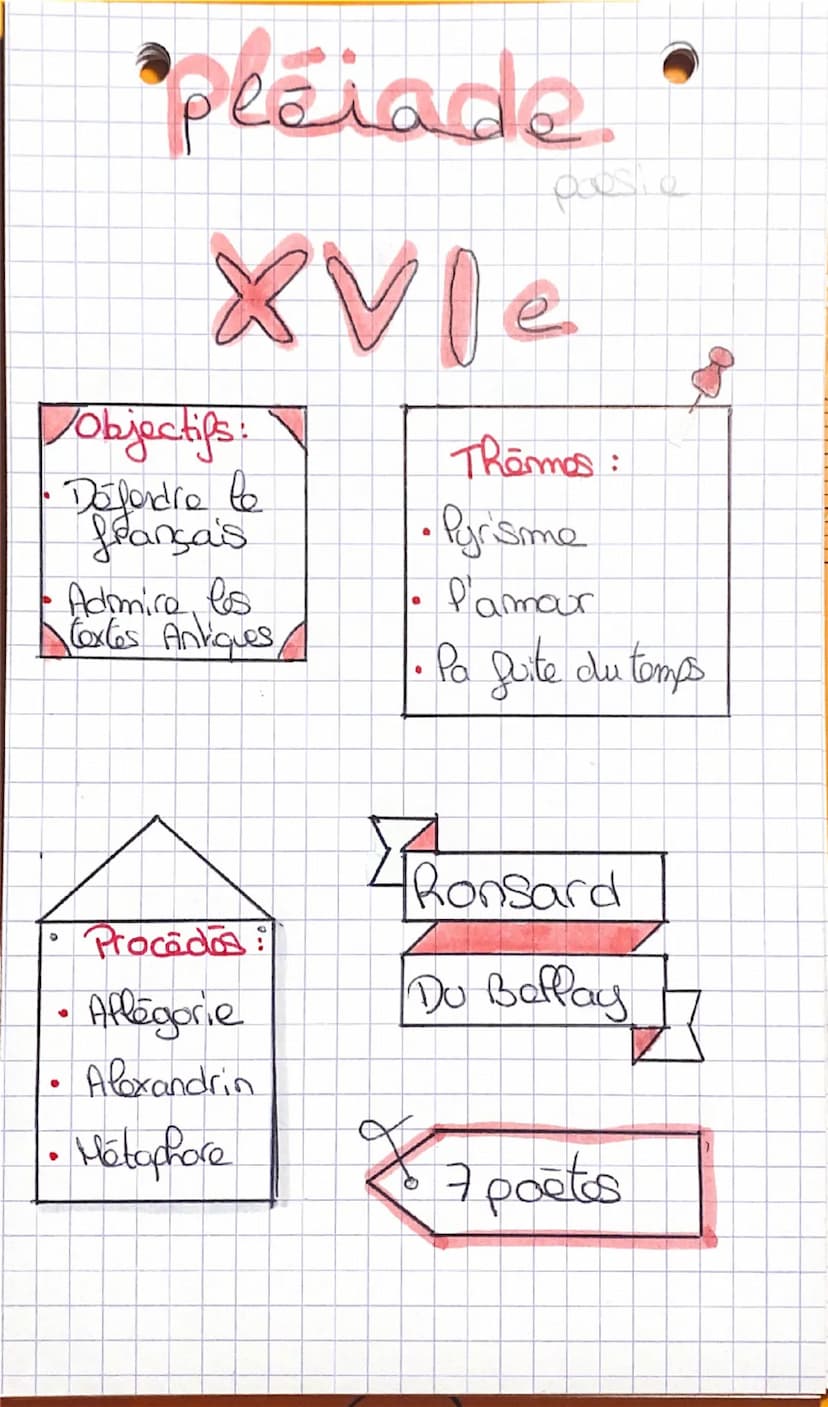 plēiade
poesie
XVIe
Objectifs:
• Défendre le
français
• Admire les
textes Antiques
Thēmes :
• lyrisme
• l'amour
• la fuite du temps
Procēdēs :
• Allēgorie
• Alexandrin
• Mētaphore
Ronsard
Du Bellay
7 poētes